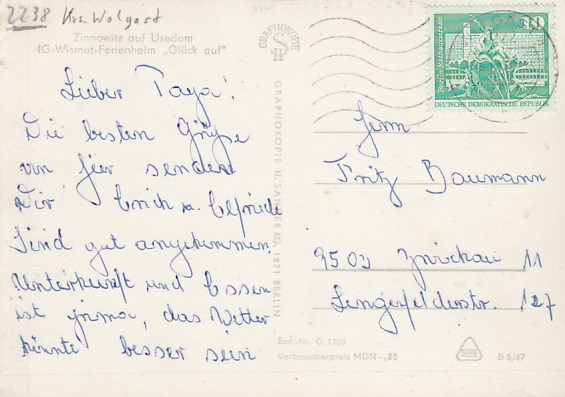 2238 Krs. Wolgast
Zinnowitz auf Usedom
IG-Wismut-Ferienheim „Glück auf"
Lieber Papa!
Die besten Grüße
von hier senden
Dir Erich u. Elfriede
Sind gut angekommen.
Unterkunft und Essen
ist prima, das Wetter
könnte besser sein
GRAPHOKOPIE
GRAPHOKOPIE H. SANDER KG. 1071 BERLIN
10
Berlin Rathausstraße
DEUTSCHE DEMOKRATISCHE REPUBLIK
Herrn
Fritz Baumann
9503 Zwickau 11
Lengefelderstr. 127
Best. Nr. G 1300
Verbraucherpreis MDN -,25
B 8/67